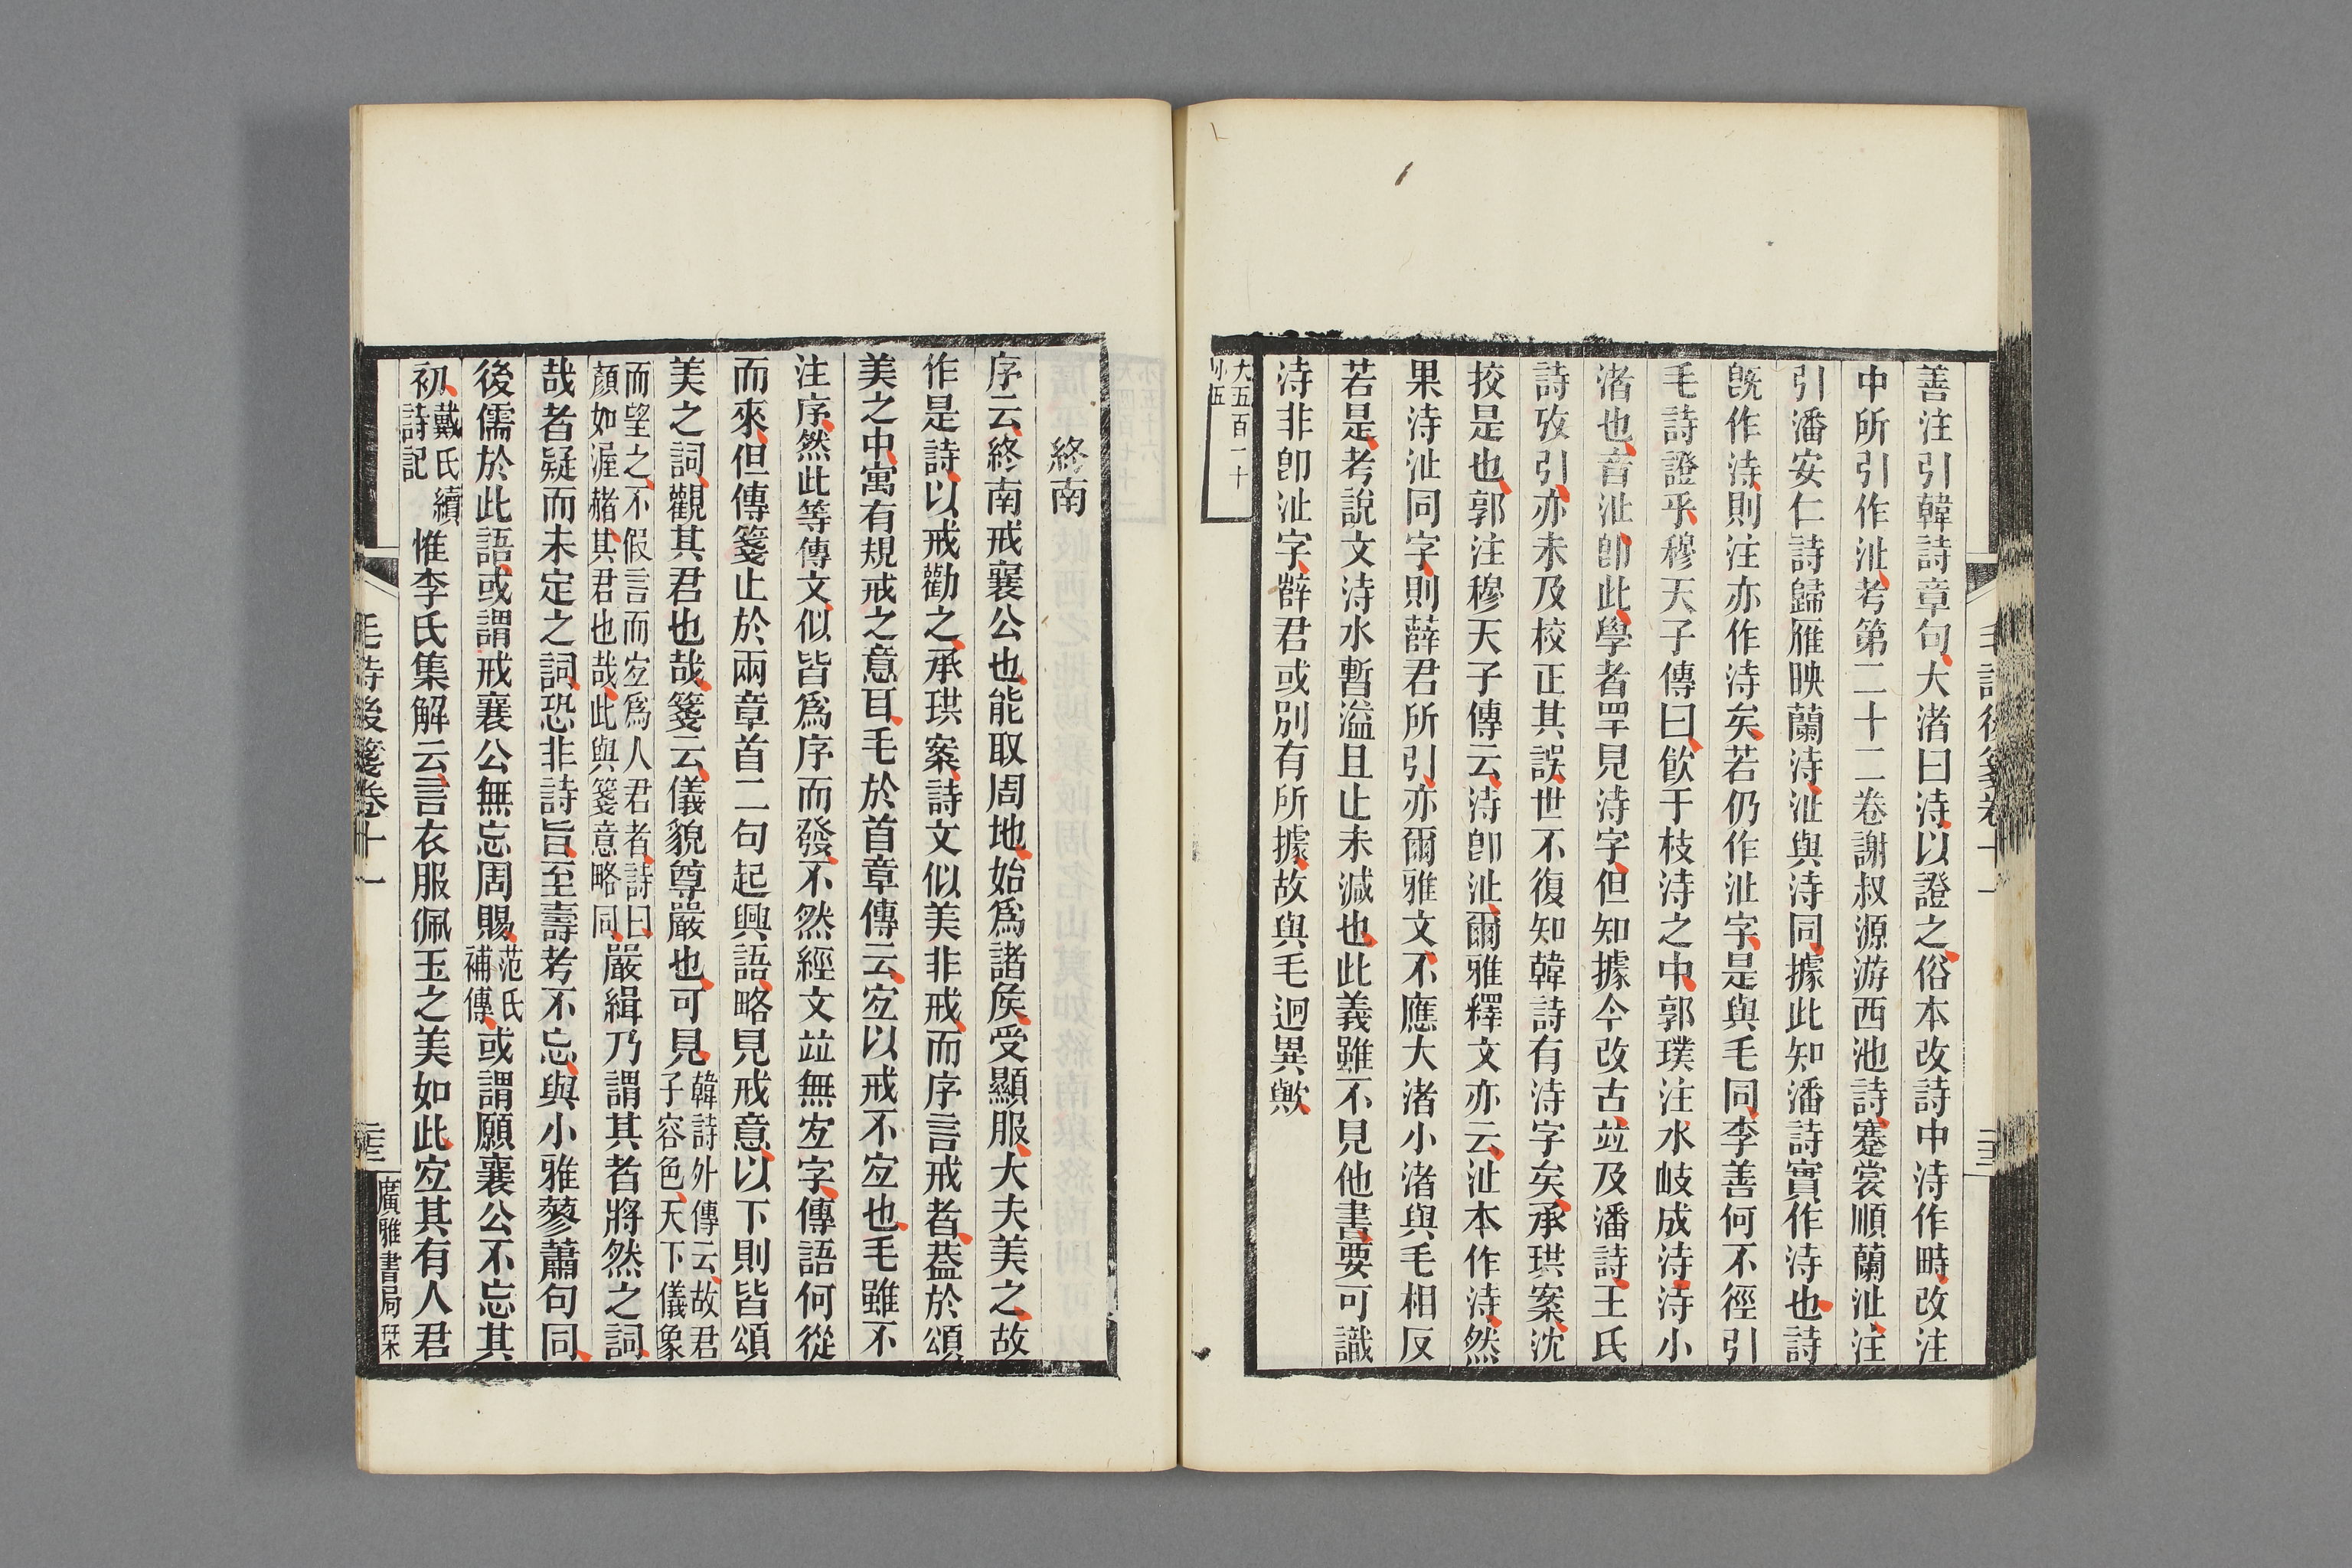 善注引韓詩章句大渚曰洔以證之俗本改詩中洔作畤改注
中所引作沚考第二十二卷謝叔源游西池詩蹇裳順蘭沚注
引潘安仁詩歸雁映蘭洔沚與洔同據此知潘詩實作洔也詩
旣作洔則注亦作洔矣若仍作沚字是與毛同李善何不徑引
毛詩證乎穆天子傳曰飮于枝洔之中郭璞注水岐成洔洔小
渚也音沚卽此學者罕見洔字但知據今改古竝及潘詩王氏
詩攷引亦未及校正其誤世不復知韓詩有洔字矣承珙案沈
挍是也郭注穆天子傳云洔卽沚爾雅釋文亦云沚本作洔然
果洔沚同字則薛君所引亦爾雅文不應大渚小渚與毛相反
若是考說文洔水暫溢且止未減也此義雖不見他書要可識
洔非卽沚字薛君或別有所據故與毛迥異歟
大五百一十
小五
毛詩後箋卷十一
終南
序云終南戒襄公也能取周地始爲諸矦受顯服大夫美之故
作是詩以戒勸之承珙案詩文似美非戒而序言戒者葢於頌
美之中寓有規戒之意耳毛於首章傳云宐以戒不宐也毛雖不
注序然此等傳文似皆爲序而發不然經文竝無宐字傳語何從
而來但傳箋止於兩章首二句起興語略見戒意以下則皆頌
美之詞觀其君也哉箋云儀貌尊嚴也可見韓詩外傳云故君子容色天下儀象
而望之不假言而宐爲人君者詩曰顏如渥赭其君也哉此與箋意略同嚴緝乃謂其者將然之詞
哉者疑而未定之詞恐非詩旨至壽考不忘與小雅蓼蕭句同
後儒於此語或謂戒襄公無忘周賜范氏補傳或謂願襄公不忘其
初戴氏續詩記惟李氏集解云言衣服佩玉之美如此宐其有人君
毛詩後箋卷十一
廣雅書局栞